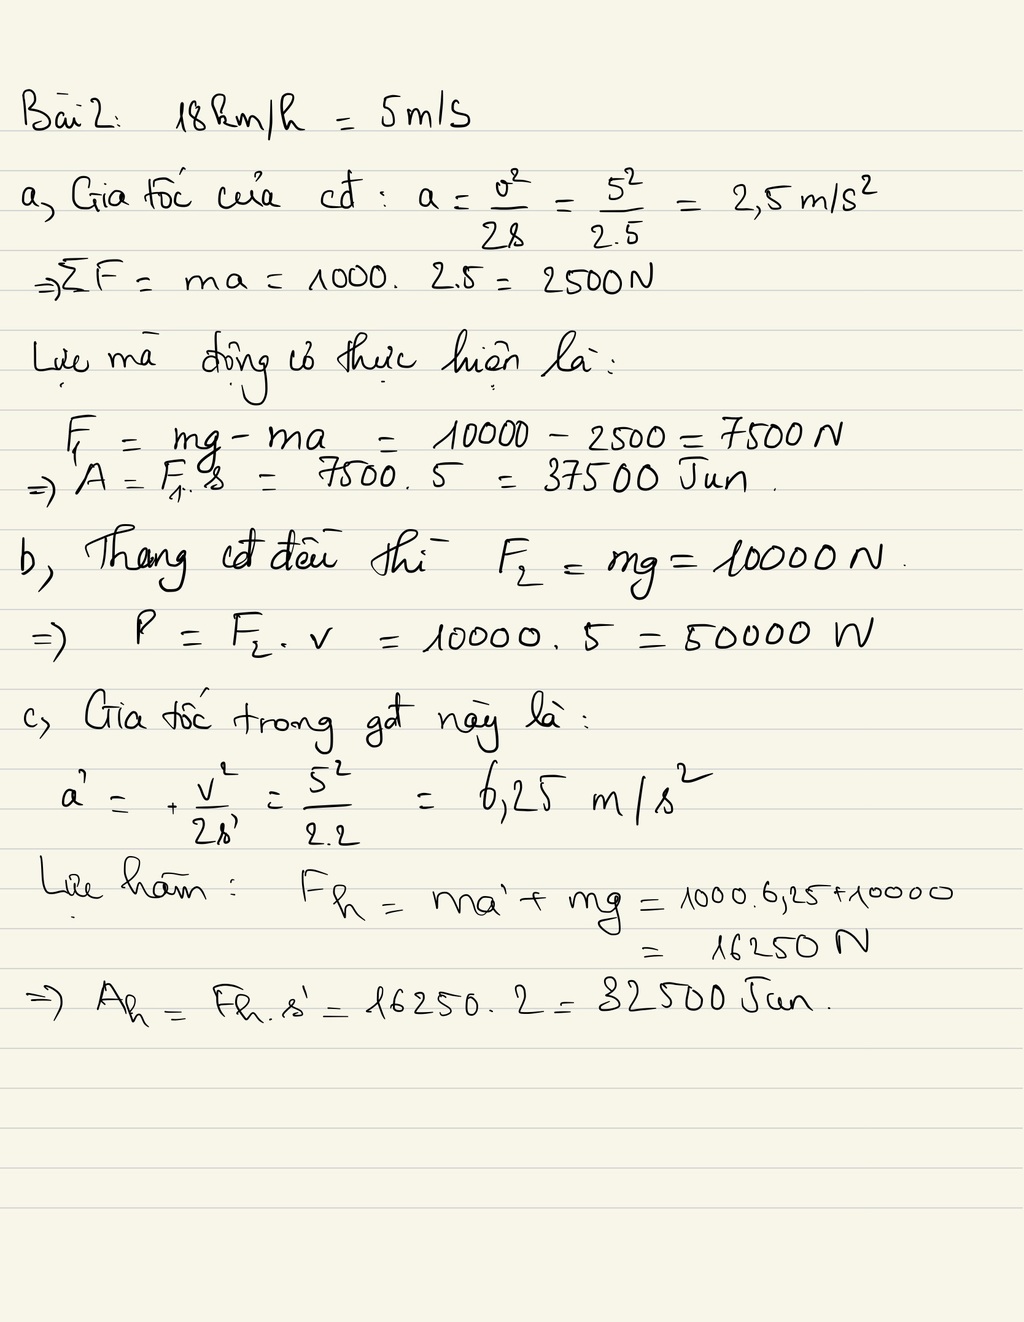 Bài 2: 18km/h = 5m/s
a, Gia tốc của cđ: a = v²/2s = 5²/2.5 = 2,5 m/s²
=> ΣF = ma = 1000. 2.5 = 2500N
Lực mà động cơ thực hiện là:
F₁ = mg - ma = 10000 - 2500 = 7500 N
=> A = F₁.s = 7500. 5 = 37500 Jun.
b, Thang cđ đều thì F₂ = mg = 10000 N.
=> P = F₂. v = 10000. 5 = 50000 W
c, Gia tốc trong gđ này là:
a' = + v²/2s' = 5²/2.2 = 6,25 m/s²
Lực hãm: Fh = ma' + mg = 1000.6,25+10000
= 16250 N
=> Ah = Fh.s' = 16250. 2 = 32500 Jun.